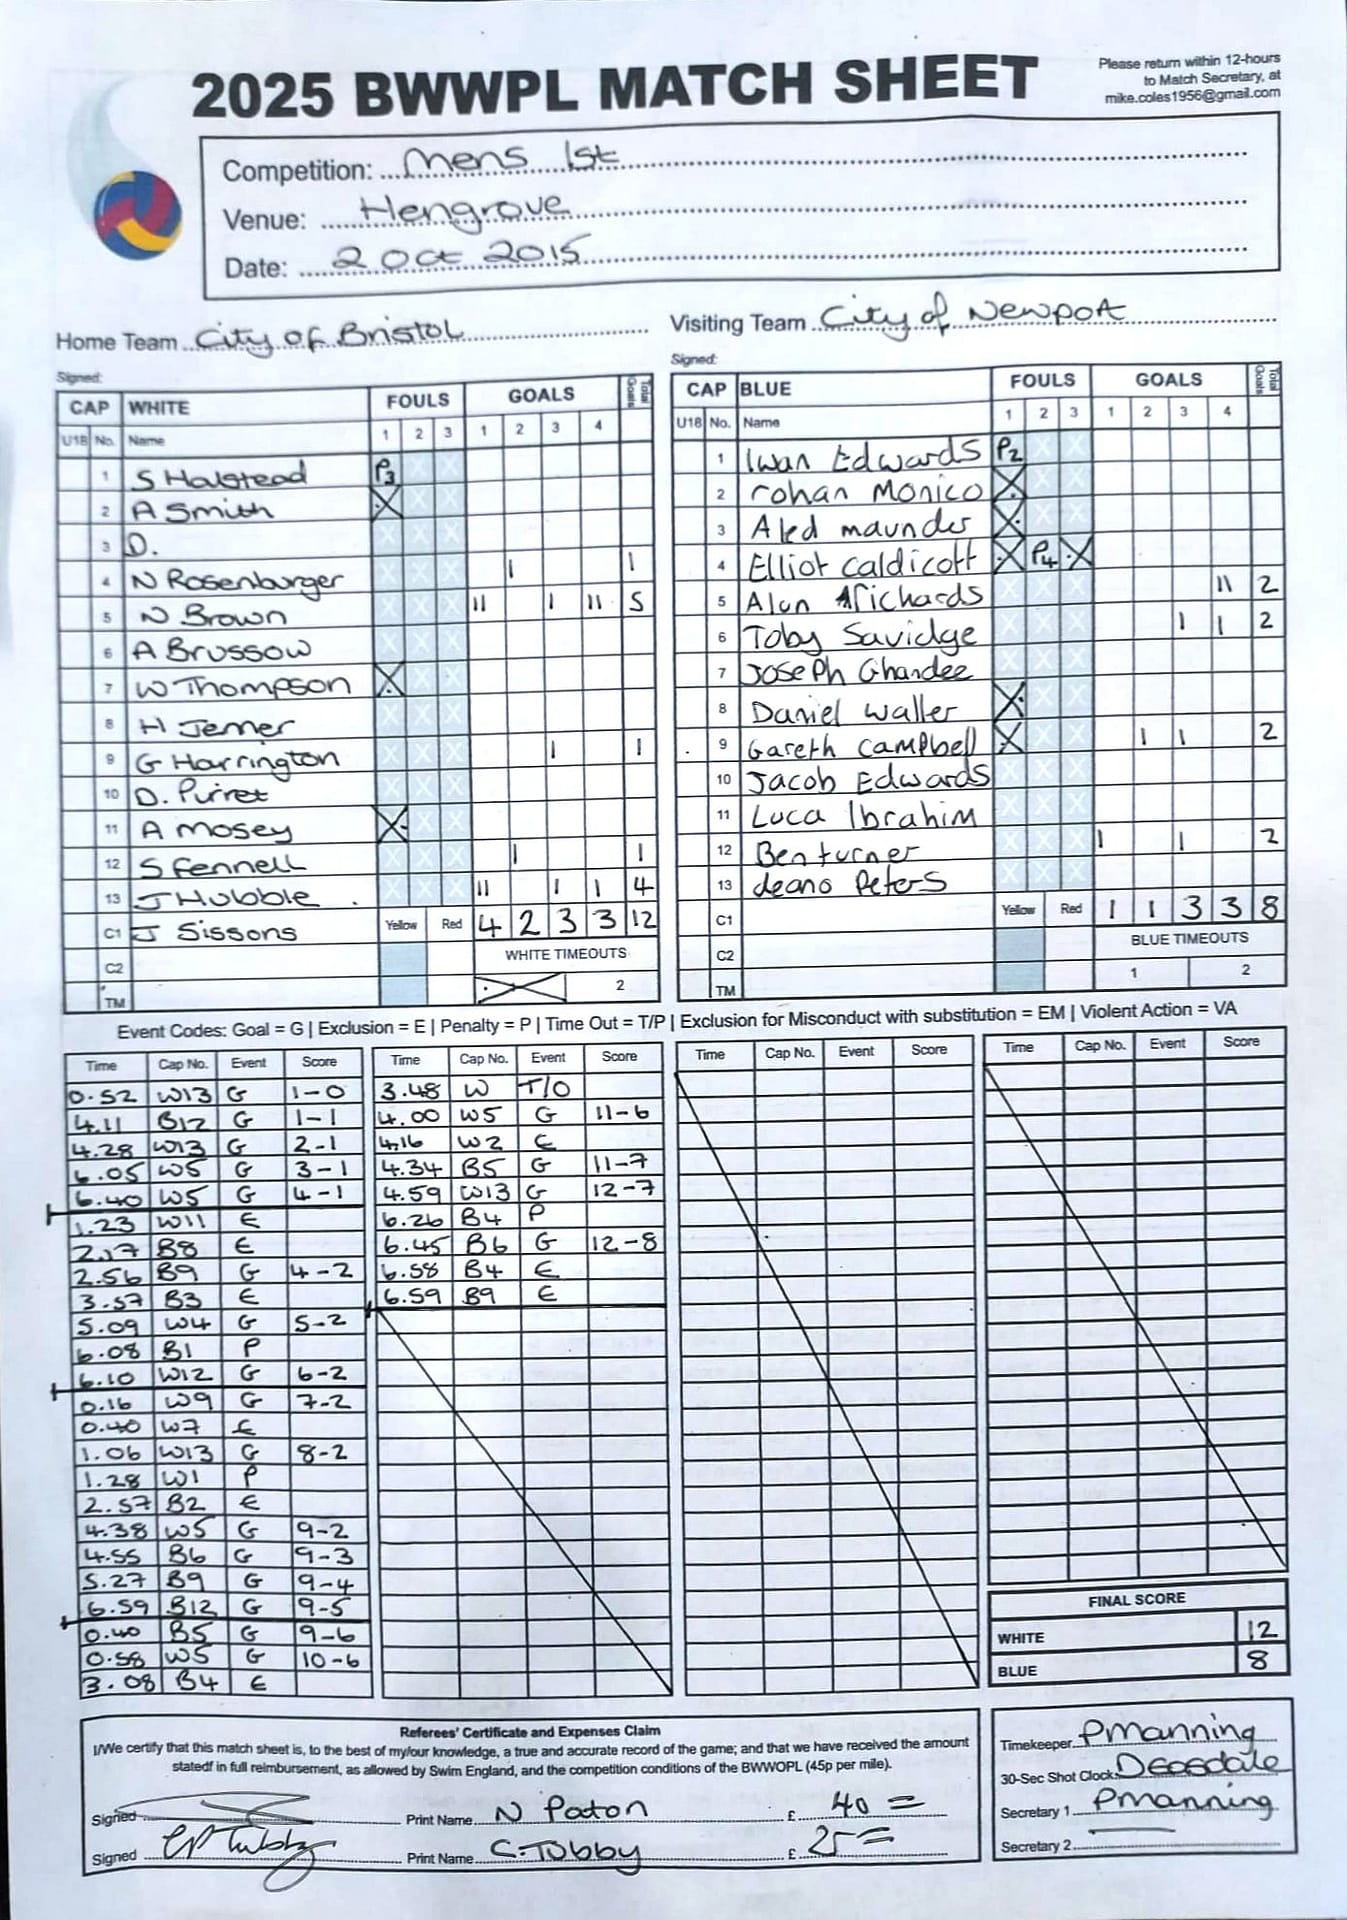 2025 BWWPL MATCH SHEET
Please return within 12-hours
to Match Secretary, at
mike.coles1956@gmail.com
Competition: Mens 1st
Venue: Hengrove
Date: 2 Oct 2015
Home Team City of Bristol
Visiting Team City of Newport
Signed:
Signed:
CAP WHITE FOULS GOALS Total Goals
U18 No. Name 1 2 3 1 2 3 4
1 S Halstead P3
2 A Smith X
3 D.
4 N Rosenburger I I
5 N Brown II I II 5
6 A Brussow
7 W Thompson X
8 H Jenner
9 G Harrington I I
10 D. Purret
11 A Mosey X
12 S Fennell I I
13 J Hubble II I I 4
C1 J Sissons Yellow Red 4 2 3 3 12
C2 WHITE TIMEOUTS
TM X 2
CAP BLUE FOULS GOALS Total Goals
U18 No. Name 1 2 3 1 2 3 4
1 Iwan Edwards P2
2 rohan Monico X
3 Aled maunder X
4 Elliot Caldicott X P4 X
5 Alun Richards II 2
6 Toby Savidge I I 2
7 Joseph Ghandee
8 Daniel Waller X
9 Gareth Campbell X I I 2
10 Jacob Edwards
11 Luca Ibrahim
12 Ben turner I I 2
13 deano Peters
C1 Yellow Red 1 1 3 3 8
C2 BLUE TIMEOUTS
TM 1 2
Event Codes: Goal = G | Exclusion = E | Penalty = P | Time Out = T/P | Exclusion for Misconduct with substitution = EM | Violent Action = VA
Time Cap No. Event Score
0.52 W13 G 1-0
4.11 B12 G 1-1
4.28 W13 G 2-1
6.05 W5 G 3-1
6.40 W5 G 4-1
1.23 W11 E
2.17 B8 E
2.56 B9 G 4-2
3.57 B3 E
5.09 W4 G 5-2
6.08 B1 P
6.10 W12 G 6-2
0.16 W9 G 7-2
0.40 W7 E
1.06 W13 G 8-2
1.28 W1 P
2.57 B2 E
4.38 W5 G 9-2
4.55 B6 G 9-3
5.27 B9 G 9-4
6.59 B12 G 9-5
0.40 B5 G 9-6
0.58 W5 G 10-6
3.08 B4 E
Time Cap No. Event Score
3.48 W T/O
4.00 W5 G 11-6
4.16 W2 E
4.34 B5 G 11-7
4.59 W13 G 12-7
6.26 B4 P
6.45 B6 G 12-8
6.58 B4 E
6.59 B9 E
Time Cap No. Event Score
Time Cap No. Event Score
FINAL SCORE
WHITE 12
BLUE 8
Referees' Certificate and Expenses Claim
I/We certify that this match sheet is, to the best of my/our knowledge, a true and accurate record of the game; and that we have received the amount
statedf in full reimbursement, as allowed by Swim England, and the competition conditions of the BWWOPL (45p per mile).
Signed Print Name N Paton £ 40 =
Signed Print Name C. Tubby £ 25 =
Timekeeper PManning
30-Sec Shot Clock
Secretary 1 PManning
Secretary 2